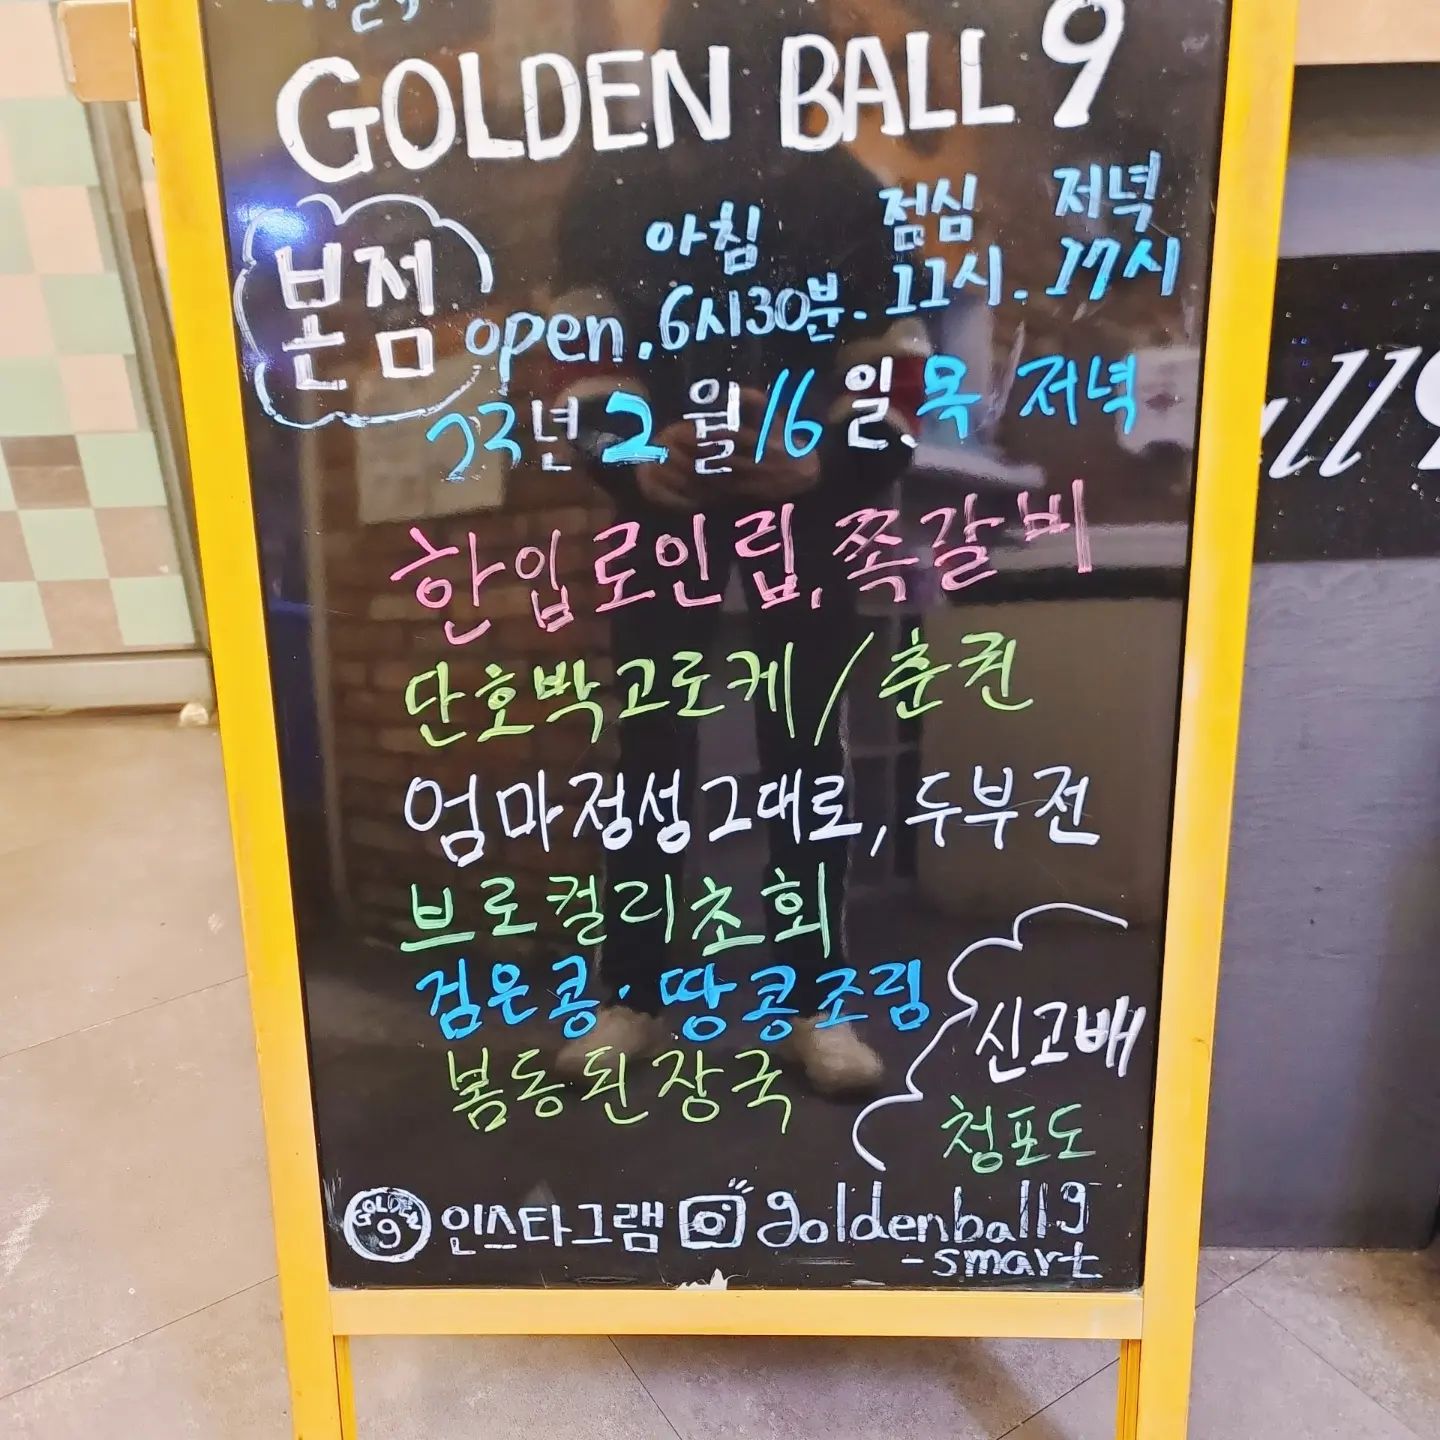 GOLDEN BALL 9
본점
아침 점심 저녁
open. 6시30분. 11시. 17시
23년 2월 16일. 목 저녁
한입로인립, 쪽갈비
단호박고로케 / 춘권
엄마정성그대로, 두부전
브로컬리초회
검은콩·땅콩조림
봄동된장국
신고배
청포도
GOLDEN 9 인스타그램 goldenball9
-smart
ll9